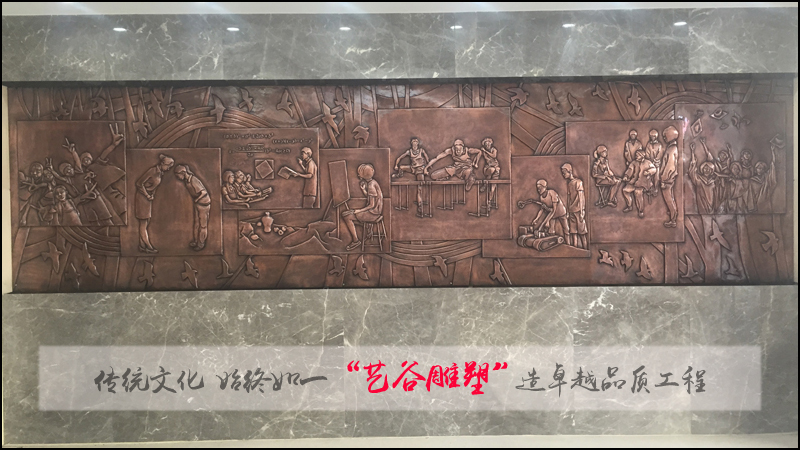 传统文化 始终如一 “艺谷雕塑” 造卓越品质工程